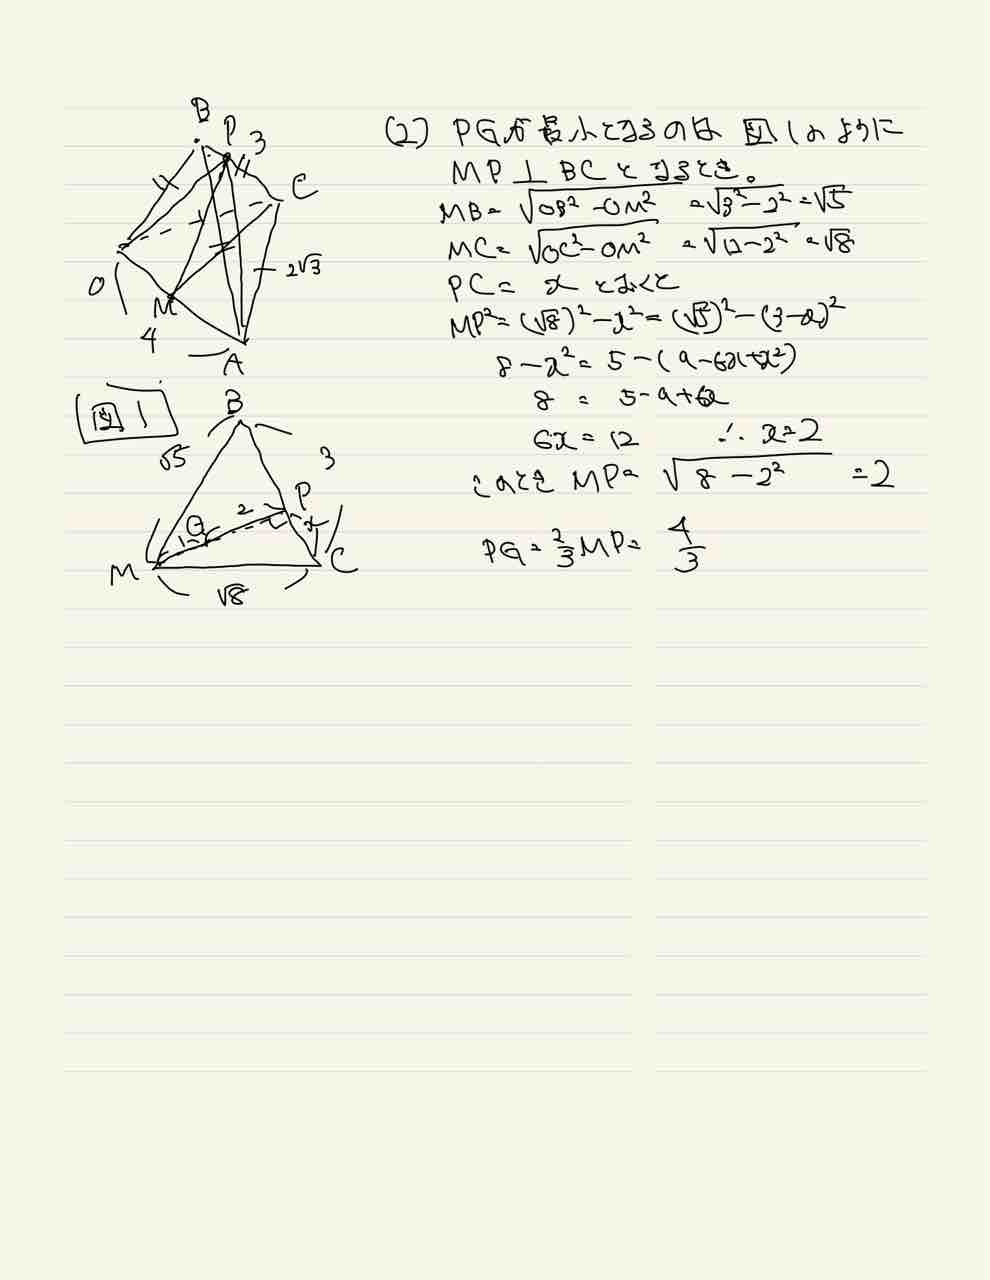 B
P
3
C
O
M
4
A
2√3
図1
B
√5
3
P
2
G
x
M
C
√8
(2) PGが最小となるのは 図1のように
MP⊥BCとなるとき。
MB=√OB²-OM² =√3²-2²=√5
MC=√OC²-OM² =√12-2²=√8
PC= x とおくと
MP²=(√8)²-x²=(√5)²-(3-x)²
8-x²=5-(9-6x+x²)
8 = 5-9+6x
6x=12 ∴x=2
このとき MP=√8-2² =2
PG=2/3MP=4/3